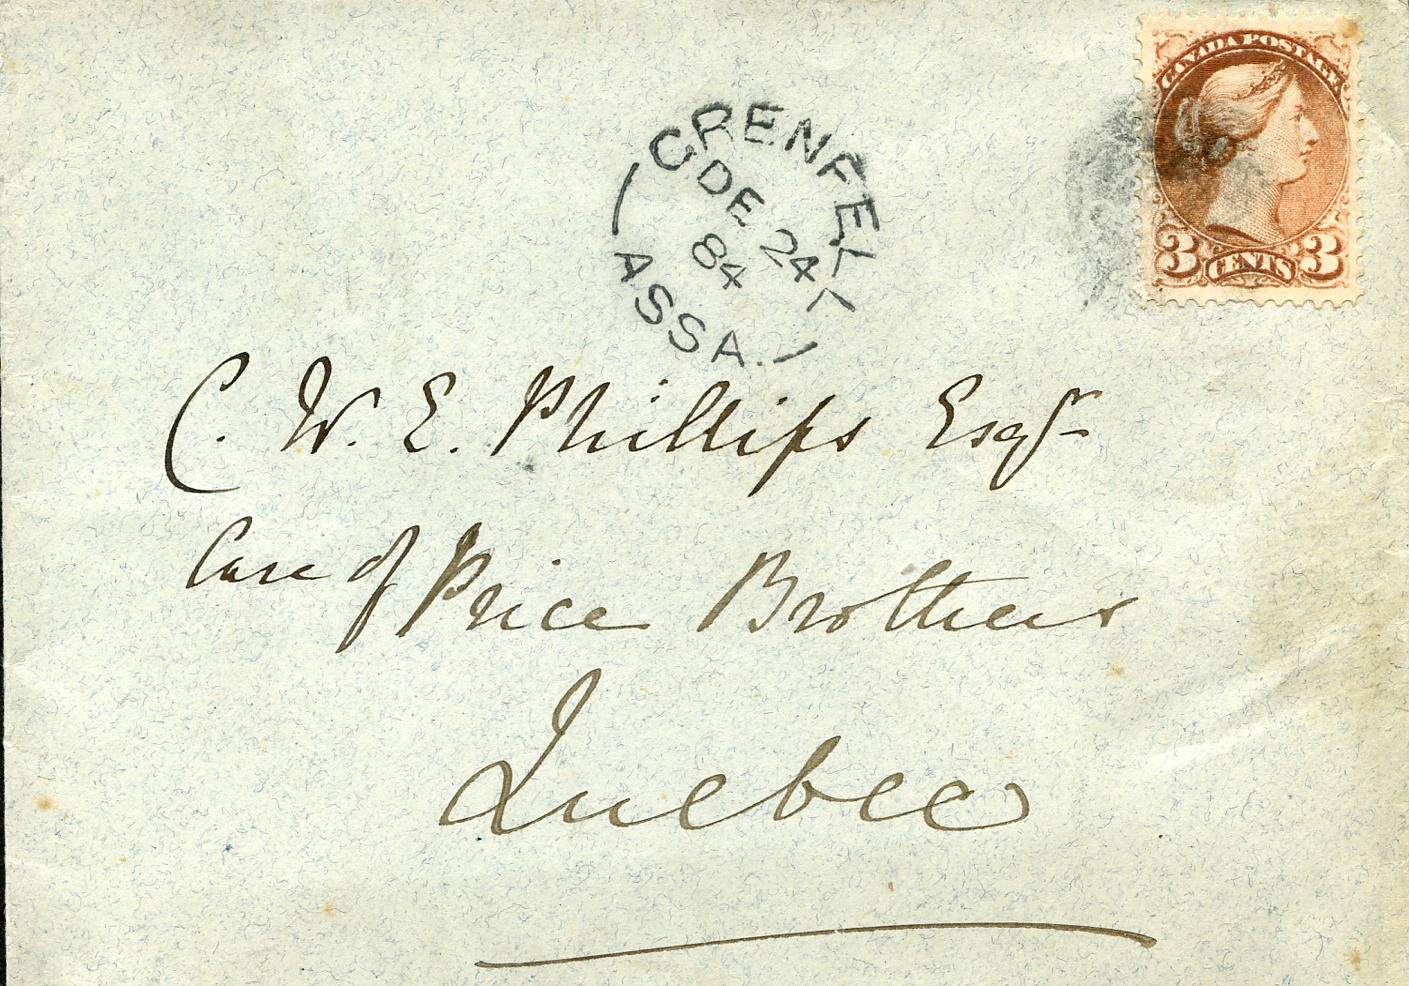 CANADA POSTAGE
3 CENTS 3
GRENFELL
DE 24
84
ASSA.
C. W. E. Phillips Esqr
Care of Price Brothers
Quebec